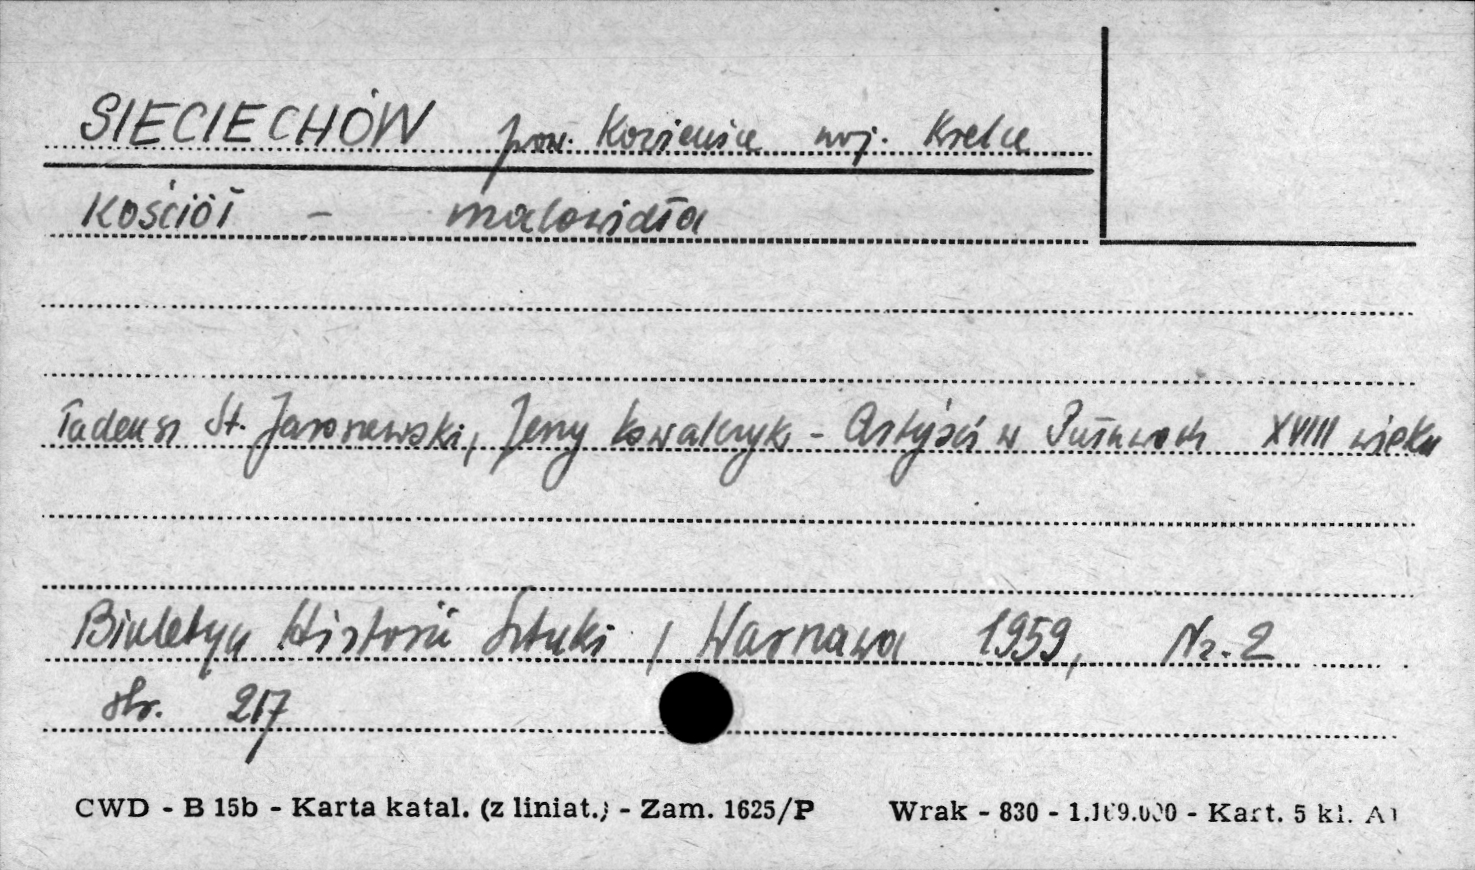 SIECIECHÓW pow. Kozienice woj. Kielce
Kościół - malowidła
Tadeusz St. Jaroszewski, Jerzy Kowalczyk - Artyści w Puławach XVIII wieku
Biuletyn Historii Sztuki, Warszawa 1959, Nr. 2
str. 217
CWD - B 15b - Karta katal. (z liniat.) - Zam. 1625/P Wrak - 830 - 1.169.000 - Kart. 5 kl. A1